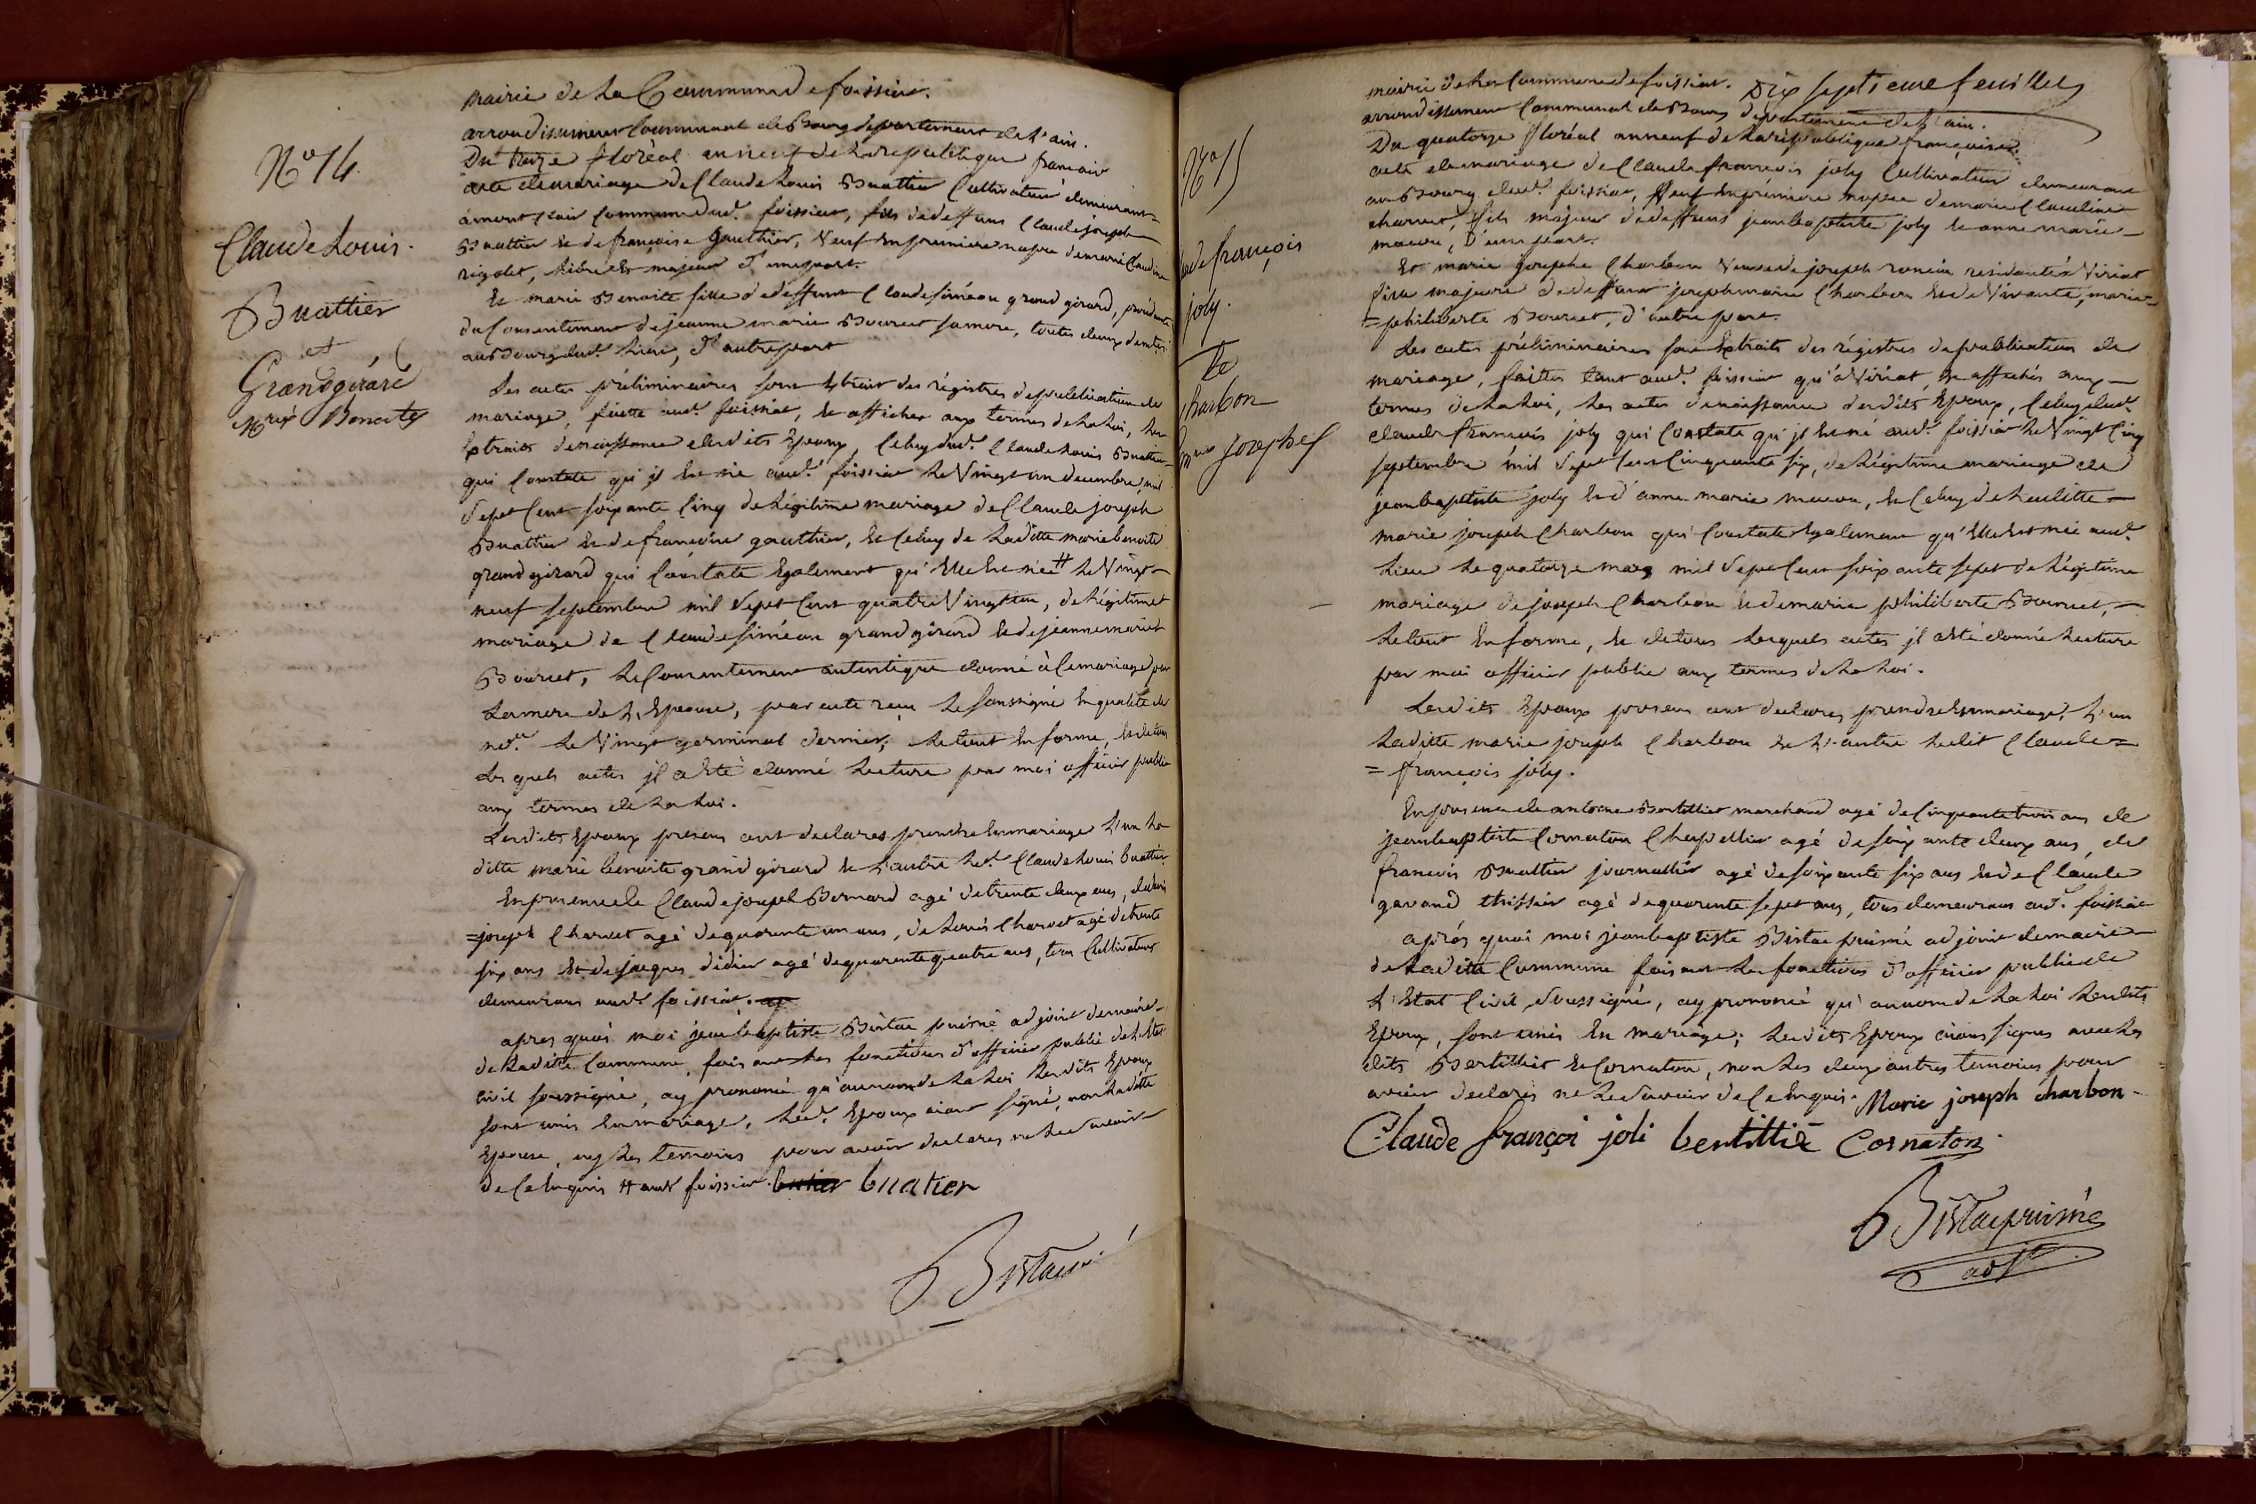 mairie de la Commune de foissiat.
arrondissement Communal de Bourg departement de l'ain.
Du treize floréal an neuf de la republique francaise
N° 14.
acte de mariage de Claude Louis Buattier Cultivateur demeurant
Claude Louis.
Buattier
et
Grandgirard
Marie Benoite
a mont clair Commune dud. foissiat, fils de deffunt Claude joseph
Buattier et de françoise Gauthier, veuf en premiere nopce de marie Claudine
rigolet, libre et majeur d'une part.
Et marie Benoite fille de deffunt Claude siméon grand girard, procédante
du Consentement de jeanne marie Bourcet sa mere, toutes deux demts
au Bourg dud. lieu, d'autre part
Les actes préliminaires sont extrait des régistres de publication de
mariage, faitte aud. foissiat, et affichés aux termes de la loi, les
extraits de naissance desdits Epoux, Celuy dud. Claude Louis Buattier
qui Constate qu'il est né aud. foissiat le vingt un decembre mil
sept Cent soixante Cinq de légitime mariage de Claude joseph
Buattier et de françoise gauthier, et Celuy de laditte marie benoite
grand girard qui Constate Egalement qu'elle est née # le vingt
neuf septembre mil sept Cent quatre vingt un, de légitime
mariage de Claude siméon grand girard et de jeanne marie
Bourcet, le Consentement autentique donné à Ce mariage par
la mere de l'Epouse, par acte reçu le soussigné en qualité de
nore. le vingt germinal dernier, le tout en forme, et de tous
les quels actes il a été donné lecture par moi officier public
aux termes de la loi.
Lesdits Epoux presens ont declarés prendre en mariage l'un la
ditte marie benoite grand girard et l'autre led. Claude Louis buattier
En presence de Claude joseph Bernard agé de trente deux ans, de
=joseph Charvet agé de quarente un ans, de Louis Charvet agé de trente
six ans et de jacques didier agé de quarente quatre ans, tous Cultivateurs
demeurans aud. foissiat.
apres quoi moi jean baptiste Bistac puisné adjoint de maire
de laditte Commune, faisant les fonctions d'officier public de l'Etat
civil soussigné, ay prononcé qu'au nom de la loi lesdits Epoux
sont unis en mariage, led. Epoux aiant signé, non laditte
Epouse, ny les temoins pour avoir declarés ne le savoir
de Ce Enquis # aud. foissiat. buatier
Bistac
mairie de la Commune de foissiat. Dix septieme feuillet
arrondissement Communal de Bourg departement de l'ain.
Du quatorze floréal an neuf de la république françaises
N° 15
acte de mariage de Claude françois joly Cultivateur demeurant
ude françois
joly.
Et
charbon
Marie Josephe
au Bourg dud. foissiat, veuf en premiere nopce de marie Claudine
charvet, fils majeur de deffunt jean baptiste joly et anne marie
macon, d'une part.
Et marie josephe Charbon veuve de joseph roncin residante à Viriat
fille majeure de deffunt joseph marie Charbon et de vivante, marie
=philiberte Bourcet, d'autre part.
Les actes préliminaires sont Extraits des régistres de publication de
mariage, faittes tant aud. foissiat qu'à viriat, et affichés aux
termes de la loi, les actes de naissance desdits Epoux, Celuy dud.
claude françois joly qui Constate qu'il est né aud. foissiat le vingt Cinq
septembre mil sept Cent Cinquante six, de légitime mariage de
jean baptiste joly et d'anne marie macon, et Celuy de laditte
marie joseph Charbon qui Constate Egalement qu'elle est née aud.
lieu le quatorze mars mil sept Cent soixante sept de légitime
mariage de joseph Charbon et de marie philiberte Bourcet,
le tout En forme, et de tous lesquels actes il a été donné lecture
par moi officier public aux termes de la loi.
Lesdits Epoux presens ont declarés prendre en mariage, l'un
laditte marie joseph Charbon et l'autre ledit Claude=
=françois joly.
En presence de antoine Bertillier marchand agé de Cinquante trois ans de
jean baptiste Cornaton Chapellier agé de soixante deux ans, de
francois Buattier journallier agé de soixante six ans et de Claude
gavand thissier agé de quarente sept ans, tous demeurans aud. foissiat
après quoi moi jean baptiste Bistac puisné adjoint de maire
de laditte Commune faisant les fonctions d'officier public de
l'Etat Civil soussigné, ay prononcé qu'au nom de la loi lesdits
Epoux, sont unis En mariage; lesdits Epoux aians signés avec les
dits Bertillier et Cornaton, non les deux autres temoins pour
avoir declarés ne le savoir de Ce Enquis. Marie joseph charbon
Claude françoi joli bertillié Cornaton
Bistac puisné
adjt